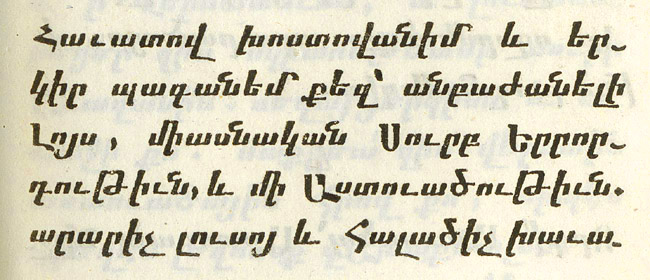 Հաւատով խոստովանիմ և եր֊
կիր պագանեմ քեզ՝ անբաժանելի
Լոյս, միասնական Սուրբ Երրոր֊
դութիւն, և մի Աստուածութիւն.
արարիչ լուսոյ և Հալածիչ խաւա֊